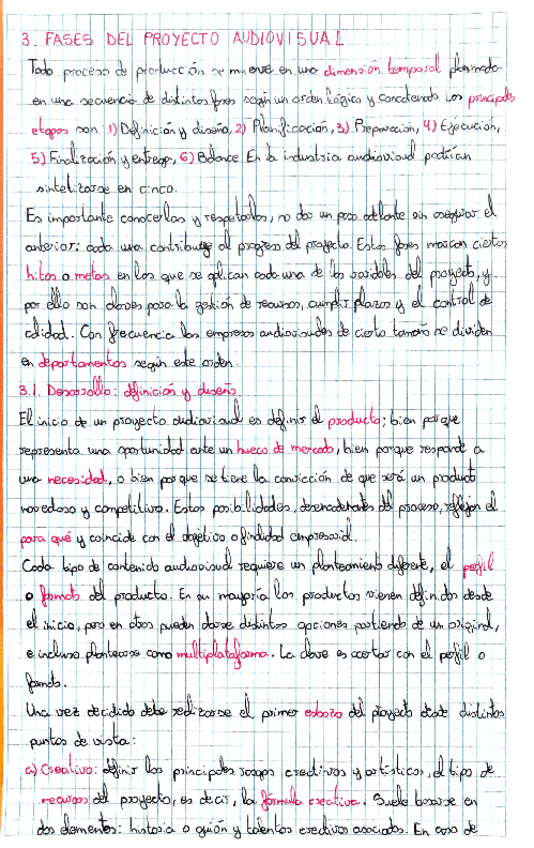 3. FASES DEL PROYECTO AUDIOVISUAL
Todo proceso de producción se mueve en una dimensión temporal plasmada
en una secuencia de distintas fases según un orden lógico y concatenado Las principales
etapas son 1) Definición y diseño, 2) Planificación, 3) Preparación, 4) Ejecución,
5) Finalización y entrega, 6) Balance En la industria audiovisual podrían
sintetizarse en cinco.
Es importante conocerlas y respetarlas, no dar un paso adelante sin asegurar el
anterior: cada una contribuye al progreso del proyecto. Estas fases marcan ciertos
hitos o metas en los que se aplican cada una de las variables del proyecto, y
por ello son claves para la gestión de recursos, cumplir plazos y el control de
calidad. Con frecuencia las empresas audiovisuales de cierto tamaño se dividen
en departamentos según este orden.
3.1. Desarrollo: definición y diseño
El inicio de un proyecto audiovisual es definir el producto; bien porque
representa una oportunidad ante un hueco de mercado, bien porque responde a
una necesidad, o bien porque se tiene la convicción de que será un producto
novedoso y competitivo. Estas posibilidades, desencadenantes del proceso, reflejan el
para qué y coincide con el objetivo o finalidad empresarial.
Cada tipo de contenido audiovisual requiere un planteamiento diferente, el perfil
o formato del producto. En su mayoría los productos vienen definidos desde
el inicio, pero en otros pueden darse distintas opciones partiendo de un original,
e incluso plantearse como multiplataforma. La clave es acertar con el perfil o
formato.
Una vez decidido debe realizarse el primer esbozo del proyecto desde distintos
puntos de vista:
a) Creativo: definir los principales rasgos creativos y artísticos, el tipo de
recursos del proyecto, es decir, la fórmula creativa. Suele basarse en
dos elementos: historia o guión y talentos creativos asociados. En caso de